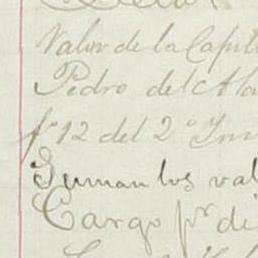 Valor de la Capit
Pedro del Ala
fº 12 del 2º In
Suman los val
Cargo pr di